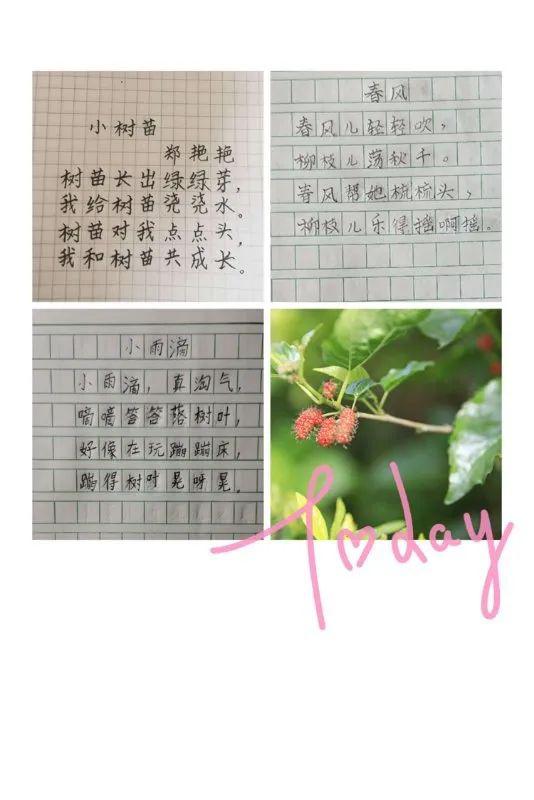 小树苗
郑艳艳
树苗长出绿绿芽，
我给树苗浇浇水。
树苗对我点点头，
我和树苗共成长。
春风
春风儿轻轻吹，
柳枝儿荡秋千。
春风帮她梳梳头，
柳枝儿乐得摇啊摇。
小雨滴
小雨滴，真淘气，
嘀嘀答答落树叶，
好像在玩蹦蹦床，
蹦得树叶晃呀晃。
Today